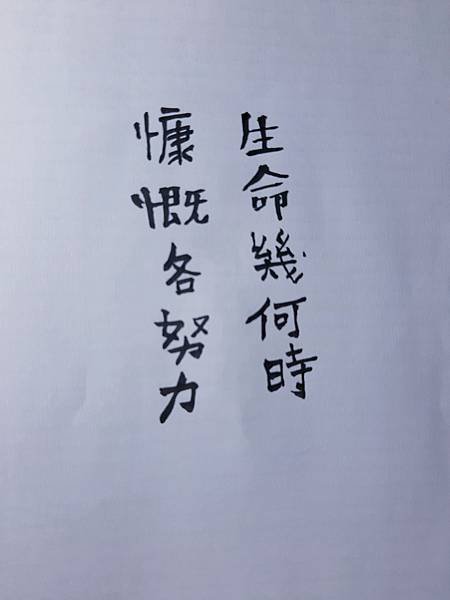 生命幾何時
慷慨各努力